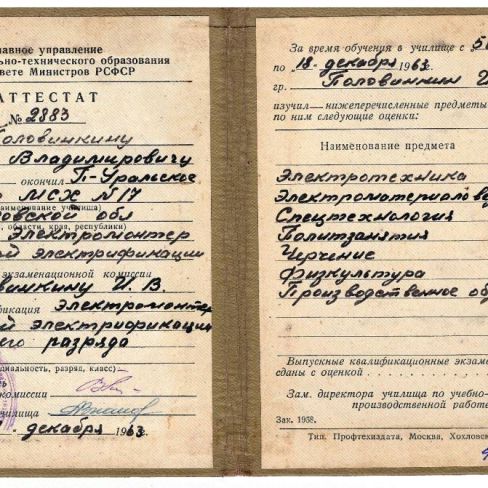 лавное управление
льно-технического образования
вете Министров РСФСР
АТТЕСТАТ
№ 2883
Половинкину
Владимировичу
окончил П-Уральское
МСХ №17
(наименование училища)
овской обл
, области, края, республики)
Электромонтер
ой электрификации
экзаменационной комиссии
винкину И. В.
фикация Электромонтер
ой электрификации
его разряда
циальность, разряд, класс)
комиссии
училища
декабря 1963 г.
За время обучения в училище с
по 18 декабря 1963 г.
гр. Половинкин И
изучил нижеперечисленные предметы
по ним следующие оценки:
Наименование предмета
Электротехника
Электроматериалове
Спецтехнология
Политзанятия
Черчение
Физкультура
Производственное об
Выпускные квалификационные экзаме
сданы с оценкой
Зам. директора училища по учебно-
производственной работе
Зак. 1958.
Тип. Профтехиздата, Москва, Хохловск